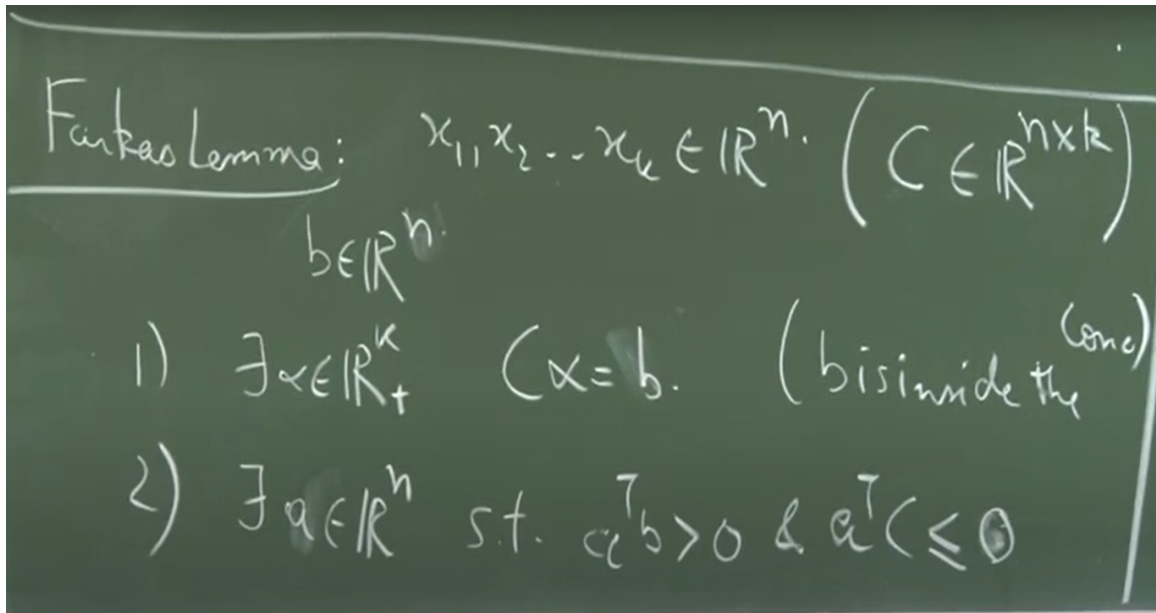 Farkas Lemma: x₁, x₂ .. xₖ ∈ ℝⁿ. (C ∈ ℝⁿˣᵏ)
b ∈ ℝⁿ.
1) ∃ α ∈ ℝᵏ₊ Cα = b. (b is inside the cone)
2) ∃ a ∈ ℝⁿ s.t. aᵀb > 0 & aᵀC ≤ 0